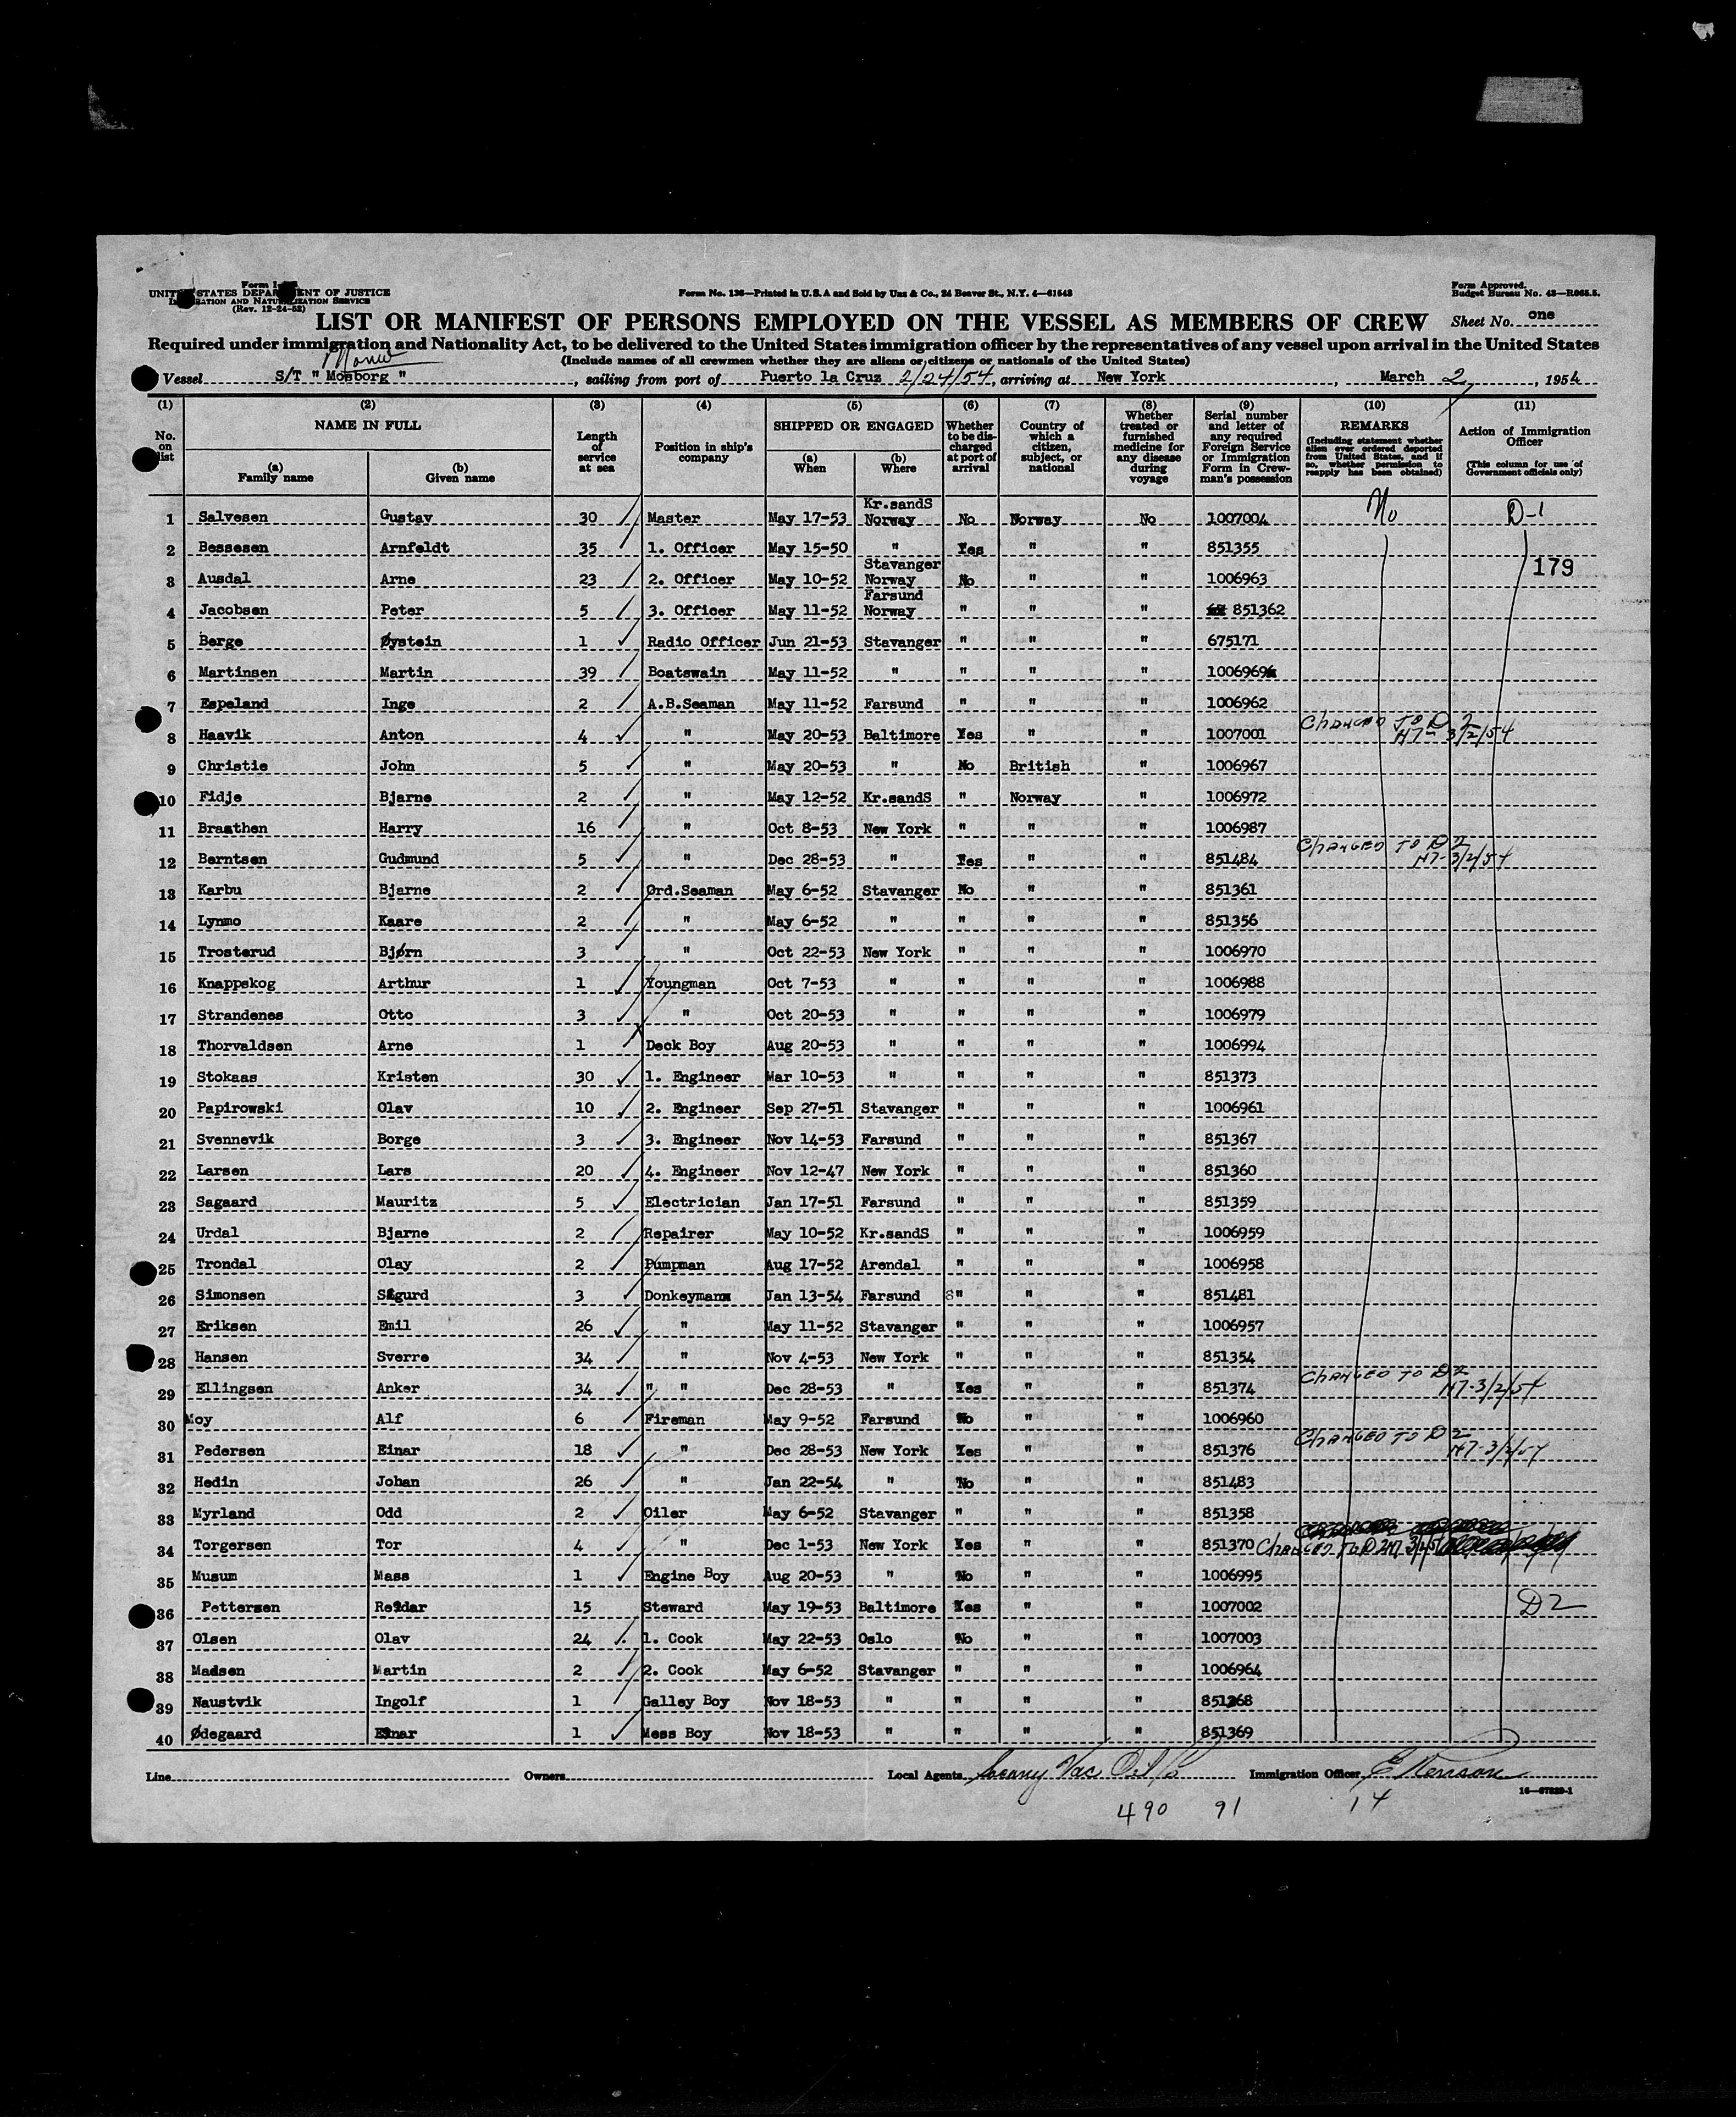 UNITED STATES DEPARTMENT OF JUSTICE
(Rev. 12-24-52)
Form No. 136—Printed in U.S.A and Sold by Unz & Co., 24 Beaver St., N.Y. 4—61543
Form Approved.
Budget Bureau No. 43—R065.5.
LIST OR MANIFEST OF PERSONS EMPLOYED ON THE VESSEL AS MEMBERS OF CREW Sheet No. one
Required under immigration and Nationality Act, to be delivered to the United States immigration officer by the representatives of any vessel upon arrival in the United States
(Include names of all crewmen whether they are aliens or citizens or nationals of the United States)
Vessel S/T " Mosborg ", sailing from port of Puerto la Cruz 2/24/54, arriving at New York, March 2, 1954
(1) (2) (3) (4) (5) (6) (7) (8) (9) (10) (11)
No. on list
NAME IN FULL
(a) Family name
(b) Given name
Length of service at sea
Position in ship's company
SHIPPED OR ENGAGED
(a) When
(b) Where
Whether to be discharged at port of arrival
Country of which a citizen, subject, or national
Whether treated or furnished medicine for any disease during voyage
Serial number and letter of any required Foreign Service or Immigration Form in Crewman's possession
REMARKS
(Including statement whether alien ever ordered deported from United States, and if so, whether permission to reapply has been obtained)
Action of Immigration Officer
(This column for use of Government officials only)
1 Salvesen Gustav 30 Master May 17-53 Kr.sandS Norway No Norway No 1007004 No D-1
2 Bessesen Arnfeldt 35 1. Officer May 15-50 " Yes " " 851355
179
3 Ausdal Arne 23 2. Officer May 10-52 Stavanger Norway No " " 1006963
4 Jacobsen Peter 5 3. Officer May 11-52 Farsund Norway " " " 851362
5 Berge Øystein 1 Radio Officer Jun 21-53 Stavanger " " " 675171
6 Martinsen Martin 39 Boatswain May 11-52 " " " " 1006969
7 Espeland Inge 2 A.B.Seaman May 11-52 Farsund " " " 1006962
8 Haavik Anton 4 " May 20-53 Baltimore Yes " " 1007001 CHANGED TO D 2 3/2/54
9 Christie John 5 " May 20-53 " No British " 1006967
10 Fidje Bjarne 2 " May 12-52 Kr.sandS " Norway " 1006972
11 Braathen Harry 16 " Oct 8-53 New York " " " 1006987
12 Berntsen Gudmund 5 " Dec 28-53 " Yes " " 851484 CHANGED TO D2 3/2/54
13 Karbu Bjarne 2 Ord.Seaman May 6-52 Stavanger No " " 851361
14 Lynmo Kaare 2 " May 6-52 " " " " 851356
15 Trosterud Bjørn 3 " Oct 22-53 New York " " " 1006970
16 Knappskog Arthur 1 Youngman Oct 7-53 " " " " 1006988
17 Strandenes Otto 3 " Oct 20-53 " " " " 1006979
18 Thorvaldsen Arne 1 Deck Boy Aug 20-53 " " " " 1006994
19 Stokaas Kristen 30 1. Engineer Mar 10-53 " " " " 851373
20 Papirowski Olav 10 2. Engineer Sep 27-51 Stavanger " " " 1006961
21 Svennevik Borge 3 3. Engineer Nov 14-53 Farsund " " " 851367
22 Larsen Lars 20 4. Engineer Nov 12-47 New York " " " 851360
23 Sagaard Mauritz 5 Electrician Jan 17-51 Farsund " " " 851359
24 Urdal Bjarne 2 Repairer May 10-52 Kr.sandS " " " 1006959
25 Trondal Olay 2 Pumpman Aug 17-52 Arendal " " " 1006958
26 Simonsen Sigurd 3 Donkeyman Jan 13-54 Farsund " " " 851481
27 Eriksen Emil 26 " May 11-52 Stavanger " " " 1006957
28 Hansen Sverre 34 " Nov 4-53 New York " " " 851354
29 Ellingsen Anker 34 " " Dec 28-53 " Yes " " 851374 CHANGED TO D2 3/2/54
30 Moy Alf 6 Fireman May 9-52 Farsund No " " 1006960
31 Pedersen Einar 18 " Dec 28-53 New York Yes " " 851376 CHANGED TO D2 3/2/54
32 Hedin Johan 26 " Jan 22-54 " No " " 851483
33 Myrland Odd 2 Oiler May 6-52 Stavanger " " " 851358
34 Torgersen Tor 4 " Dec 1-53 New York Yes " " 851370 CHANGED TO D2
35 Musum Mass 1 Engine Boy Aug 20-53 " No " " 1006995
36 Pettersen Reidar 15 Steward May 19-53 Baltimore Yes " " 1007002 D2
37 Olsen Olav 24 1. Cook May 22-53 Oslo No " " 1007003
38 Madsen Martin 2 2. Cook May 6-52 Stavanger " " " 1006964
39 Naustvik Ingolf 1 Galley Boy Nov 18-53 " " " " 851368
40 Ødegaard Einar 1 Mess Boy Nov 18-53 " " " " 851369
Line Owners Local Agents Socony Vac Oil Co Immigration Officer
16—67229-1
490 91 14